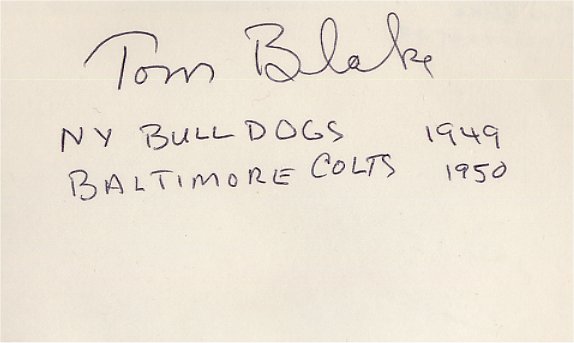 Tom Blake
NY BULLDOGS 1949
BALTIMORE COLTS 1950